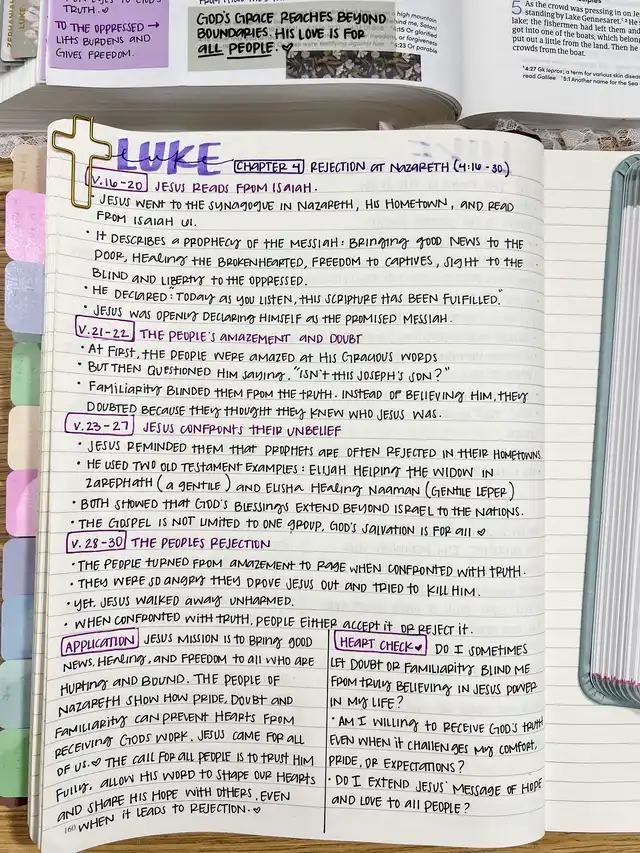 TRUTH. ♥
TO THE OPPRESSED →
LIFTS BURDENS AND
GIVES FREEDOM.
GOD'S GRACE REACHES BEYOND
BOUNDARIES. HIS LOVE IS FOR
ALL PEOPLE. ♥
high mountain
me, Satan!
4:15 Or glorified
or forgiveness
4:23 Or parable
5 As the crowd was pressing in on Je
standing by Lake Gennesaret.
lake; the fishermen had left them and
got into one of the boats, which belon
put out a little from the land. Then he
crowds from the boat.
4:27 Gk lepros; a term for various skin disea
read Galilee 5:1 Another name for the Sea
LUKE
luke
CHAPTER 4 REJECTION AT NAZARETH (4:16-30)
V.16-20 JESUS READS FROM ISAIAH.
• JESUS WENT TO THE SYNAGOGUE IN NAZARETH, HIS HOMETOWN, AND READ
FROM ISAIAH 61.
• IT DESCRIBES A PROPHECY OF THE MESSIAH: BRINGING GOOD NEWS TO THE
POOR, HEALING THE BROKENHEARTED, FREEDOM TO CAPTIVES, SIGHT TO THE
BLIND AND LIBERTY TO THE OPPRESSED.
• HE DECLARED: "TODAY AS YOU LISTEN, THIS SCRIPTURE HAS BEEN FULFILLED."
• JESUS WAS OPENLY DECLARING HIMSELF AS THE PROMISED MESSIAH.
V.21-22 THE PEOPLE'S AMAZEMENT AND DOUBT
• AT FIRST, THE PEOPLE WERE AMAZED AT HIS GRACIOUS WORDS
• BUT THEN QUESTIONED HIM SAYING, "ISN'T THIS JOSEPH'S SON?"
• FAMILIARITY BLINDED THEM FROM THE TRUTH. INSTEAD OF BELIEVING HIM, THEY
DOUBTED BECAUSE THEY THOUGHT THEY KNEW WHO JESUS WAS.
V.23-27 JESUS CONFRONTS THEIR UNBELIEF
• JESUS REMINDED THEM THAT PROPHETS ARE OFTEN REJECTED IN THEIR HOMETOWNS.
• HE USED TWO OLD TESTAMENT EXAMPLES: ELIJAH HELPING THE WIDOW IN
ZAREPHATH (A GENTILE) AND ELISHA HEALING NAAMAN (GENTILE LEPER)
• BOTH SHOWED THAT GOD'S BLESSINGS EXTEND BEYOND ISRAEL TO THE NATIONS.
• THE GOSPEL IS NOT LIMITED TO ONE GROUP, GOD'S SALVATION IS FOR ALL ♥
V. 28-30 THE PEOPLES REJECTION
• THE PEOPLE TURNED FROM AMAZEMENT TO RAGE WHEN CONFRONTED WITH TRUTH.
• THEY WERE SO ANGRY THEY DROVE JESUS OUT AND TRIED TO KILL HIM.
• YET, JESUS WALKED AWAY UNHARMED.
• WHEN CONFRONTED WITH TRUTH, PEOPLE EITHER ACCEPT IT OR REJECT IT.
APPLICATION JESUS MISSION IS TO BRING GOOD
NEWS, HEALING, AND FREEDOM TO ALL WHO ARE
HURTING AND BOUND. THE PEOPLE OF
NAZARETH SHOW HOW PRIDE, DOUBT AND
FAMILIARITY CAN PREVENT HEARTS FROM
RECEIVING GODS WORK. JESUS CAME FOR ALL
OF US. ♥ THE CALL FOR ALL PEOPLE IS TO TRUST HIM
FULLY, ALLOW HIS WORD TO SHAPE OUR HEARTS
AND SHARE HIS HOPE WITH OTHERS, EVEN
WHEN IT LEADS TO REJECTION. ♥
HEART CHECK ♥ DO I SOMETIMES
LET DOUBT OR FAMILIARITY BLIND ME
FROM TRULY BELIEVING IN JESUS POWER
IN MY LIFE?
• AM I WILLING TO RECEIVE GOD'S TRUTH
EVEN WHEN IT CHALLENGES MY COMFORT,
PRIDE, OR EXPECTATIONS?
• DO I EXTEND JESUS' MESSAGE OF HOPE
AND LOVE TO ALL PEOPLE?
160